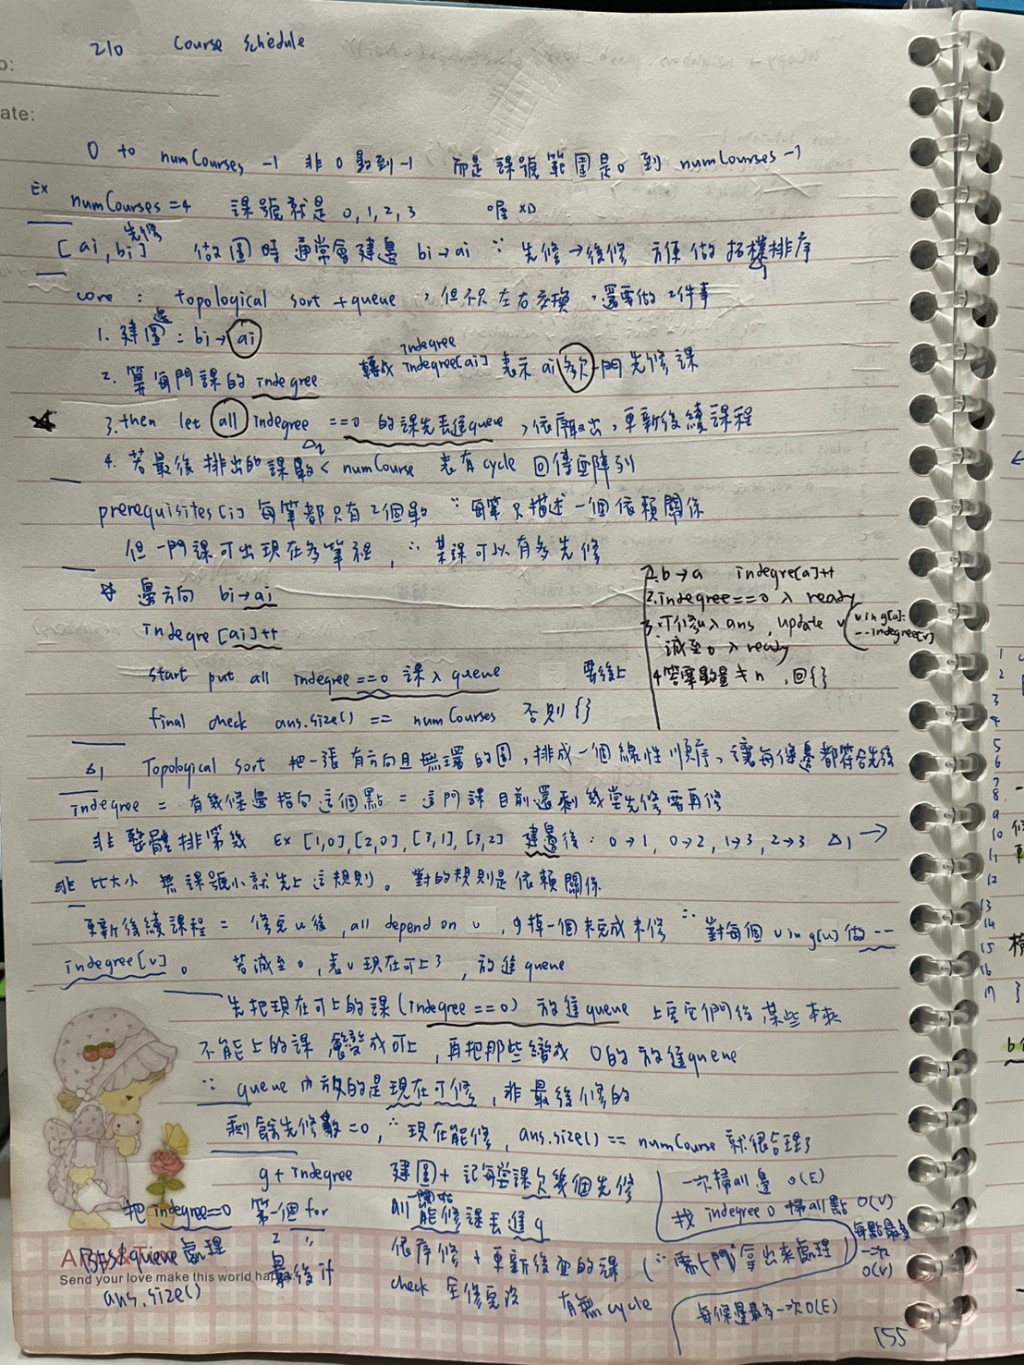 210 Course schedule
o:
ate:
0 to numCourses -1 非 0 數到 -1 而是課號範圍是 0 到 numCourses -1
Ex numCourses = 4 課號就是 0, 1, 2, 3 喔 XD
先修
[ai, bi] 做圖時通常會建邊 bi→ai ∵ 先修→後修 方便做拓樸排序
core : topological sort + queue , 但不只左右交換, 還要做 2件事
1. 建圖邊 : bi→ai
indegree
2. 算每門課的 indegree 轉成 indegree[ai] 表示 ai 多欠一門先修課
3. then let all indegree == 0 的課先丟進queue , 依序取出, 更新後續課程
4. 若最後排出的課數 < numCourse 表有 cycle 回傳空陣列
prerequisites[i] 每筆都只有 2個數 ∵ 每筆只描述一個依賴關係
但一門課可出現在多筆裡, ∴ 某課可以有多先修
邊方向 bi→ai
1. b→a indegre[a]++
2. indegree==0 入 ready
indegre[ai]++
3. 可修u入 ans , update v (v in g[u]: --indegree[v])
減至 0 入 ready
start put all indegree == 0 課入 queue
4 答案數量 ≠ n , 回{}
final check ans.size() == numCourses 否則 {}
△1 Topological sort 把一張有方向且無環的圖, 排成一個線性順序, 讓每條邊都符合先後
indegree = 有幾條邊指向這個點 = 這門課目前還剩幾堂先修需再修
非整體排第幾 Ex [1,0], [2,0], [3,1], [3,2] 建邊後 : 0→1, 0→2, 1→3, 2→3 △1 →
非 比大小 無課號小就先上這規則。 對的規則是依賴關係
更新後續課程 = 修完 u 後, all depend on u , 少掉一個未完成未修 ∴ 對每個 v in g[u] 做 --
indegree[v] 。 若減至 0 , 表 v 現在可上了 , 放進 queue
先把現在可上的課 (indegree == 0) 放進queue 上完它們後某些本來
不能上的課會變成可上 , 再把那些變成 0的放進queue
∵ queue 內放的是現在可修 , 非最後修的
剩餘先修數 = 0, ∴ 現在能修, ans.size() == numCourse 就很合理了
g + indegree 建圖 + 記每堂課欠幾個先修 一次掃all 邊 O(E)
把 indegree=0 第一個 for all 能修課丟進 q 找 indegree 0 掃all點 O(V)
BFS queue 處理 2 " 依序修 + 更新後面的課 (∵ 需\"門\"拿出來處理) 每點最多一次 O(V)
ans.size() 最後 if check 全修完沒 有無 cycle 每條邊最多一次 O(E)
Send your love make this world ha
155